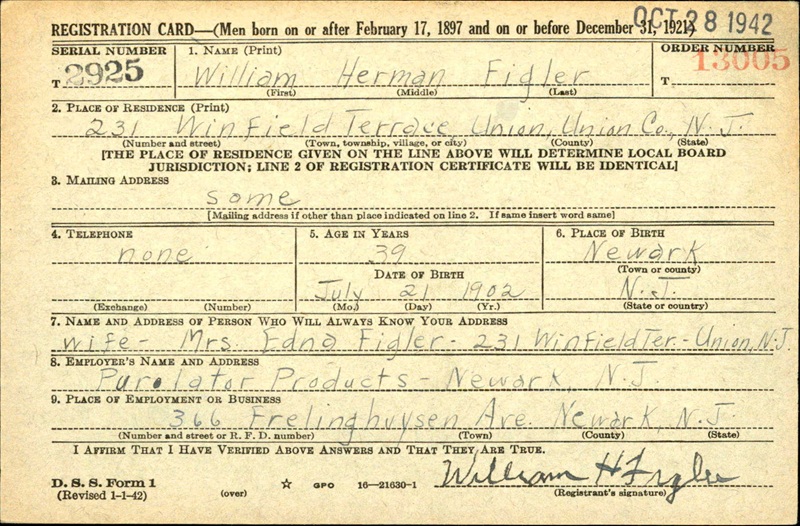 REGISTRATION CARD—(Men born on or after February 17, 1897 and on or before December 31, 1921)
OCT 28 1942
SERIAL NUMBER
1. NAME (Print)
ORDER NUMBER
T 2925
William Herman Figler
T 13005
(First) (Middle) (Last)
2. PLACE OF RESIDENCE (Print)
231 Winfield Terrace, Union, Union Co., N. J.
(Number and street) (Town, township, village, or city) (County) (State)
[THE PLACE OF RESIDENCE GIVEN ON THE LINE ABOVE WILL DETERMINE LOCAL BOARD
JURISDICTION; LINE 2 OF REGISTRATION CERTIFICATE WILL BE IDENTICAL]
3. MAILING ADDRESS
same
[Mailing address if other than place indicated on line 2. If same insert word same]
4. TELEPHONE
5. AGE IN YEARS
6. PLACE OF BIRTH
none
39
Newark
(Town or county)
DATE OF BIRTH
July 21 1902
N. J.
(Exchange) (Number)
(Mo.) (Day) (Yr.)
(State or country)
7. NAME AND ADDRESS OF PERSON WHO WILL ALWAYS KNOW YOUR ADDRESS
wife - Mrs. Edna Figler - 231 Winfield Ter. - Union, N.J.
8. EMPLOYER'S NAME AND ADDRESS
Purolator Products - Newark, N. J.
9. PLACE OF EMPLOYMENT OR BUSINESS
366 Frelinghuysen Ave. Newark, N. J.
(Number and street or R. F. D. number) (Town) (County) (State)
I AFFIRM THAT I HAVE VERIFIED ABOVE ANSWERS AND THAT THEY ARE TRUE.
William H Figler
D. S. S. Form 1
(Revised 1-1-42) (over) ☆ GPO 16—21630-1
(Registrant's signature)